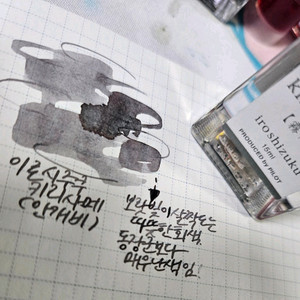 이로시주쿠
키리사메
(안개비)
보라빛이 살짝 도는
따뜻한 회색.
동장군보다
매우 난색임!
Ki
【霧
iroshizuku
15ml
PRODUCED BY PILOT